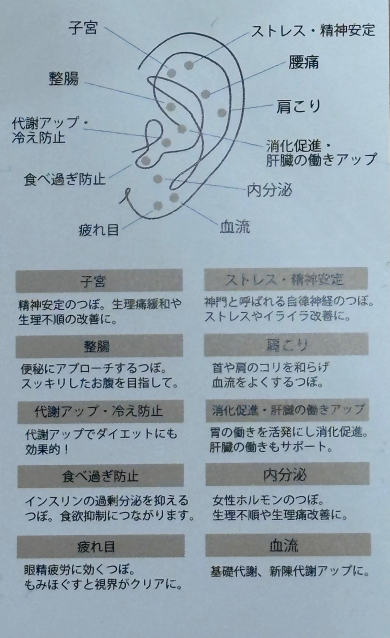 子宮
ストレス・精神安定
腰痛
整腸
肩こり
代謝アップ・
冷え防止
消化促進・
肝臓の働きアップ
食べ過ぎ防止
内分泌
疲れ目
血流
子宮
精神安定のつぼ。生理痛緩和や
生理不順の改善に。
ストレス・精神安定
神門と呼ばれる自律神経のつぼ。
ストレスやイライラ改善に。
整腸
便秘にアプローチするつぼ。
スッキリしたお腹を目指して。
肩こり
首や肩のコリを和らげ
血流をよくするつぼ。
代謝アップ・冷え防止
代謝アップでダイエットにも
効果的！
消化促進・肝臓の働きアップ
胃の働きを活発にし消化促進。
肝臓の働きもサポート。
食べ過ぎ防止
インスリンの過剰分泌を抑える
つぼ。食欲抑制につながります。
内分泌
女性ホルモンのつぼ。
生理不順や生理痛改善に。
疲れ目
眼精疲労に効くつぼ。
もみほぐすと視界がクリアに。
血流
基礎代謝、新陳代謝アップに。